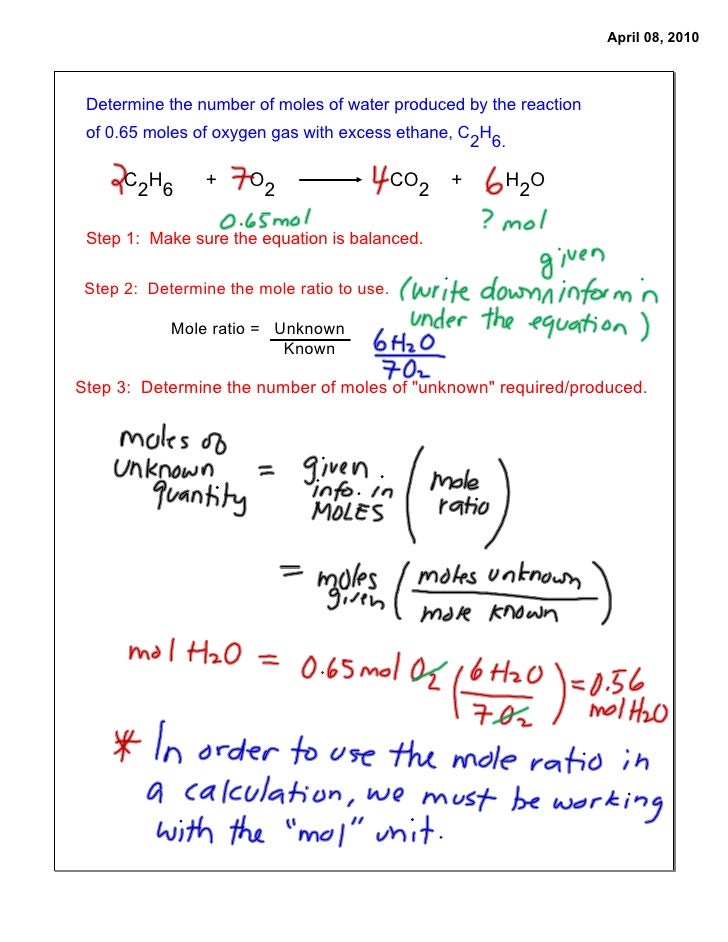 April 08, 2010
Determine the number of moles of water produced by the reaction
of 0.65 moles of oxygen gas with excess ethane, C2H6.
2C2H6 + 7O2 ⟶ 4CO2 + 6H2O
0.65mol ? mol
Step 1: Make sure the equation is balanced.
given
Step 2: Determine the mole ratio to use. (write down ∧ inform'n
under the equation)
Mole ratio = Unknown
Known
6H2O
7O2
Step 3: Determine the number of moles of "unknown" required/produced.
moles of
unknown
quantity = given info. in MOLES (mole ratio)
= moles given (moles unknown
mole known)
mol H2O = 0.65 mol O2 (6 H2O
7 O2) = 0.56
mol H2O
* In order to use the mole ratio in
a calculation, we must be working
with the "mol" unit.